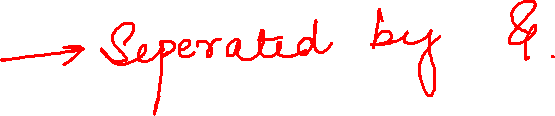 → Seperated by &.